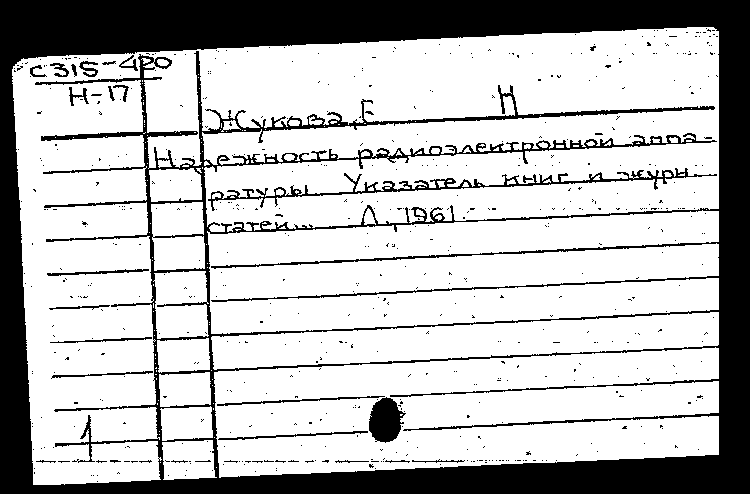 С315-420
Н-17
Жукова, Е Н
Надежность радиоэлектронной аппа-
ратуры. Указатель книг и журн.
статей... Л., 1961.
1